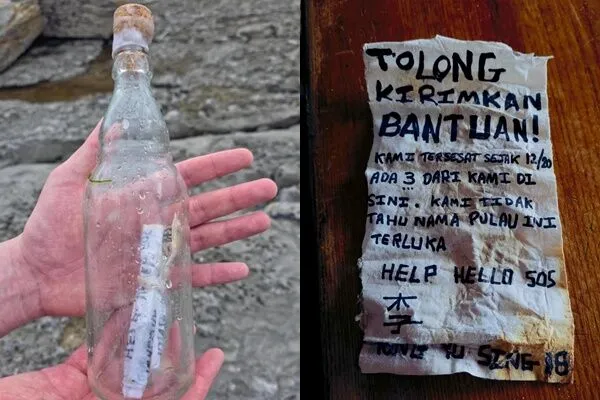 TOLONG
KIRIMKAN
BANTUAN!
KAMI TERSESAT SEJAK 12/20
ADA 3 DARI KAMI DI
SINI. KAMI TIDAK
TAHU NAMA PULAU INI
TERLUKA
HELP HELLO SOS
木
子
YU SING 18